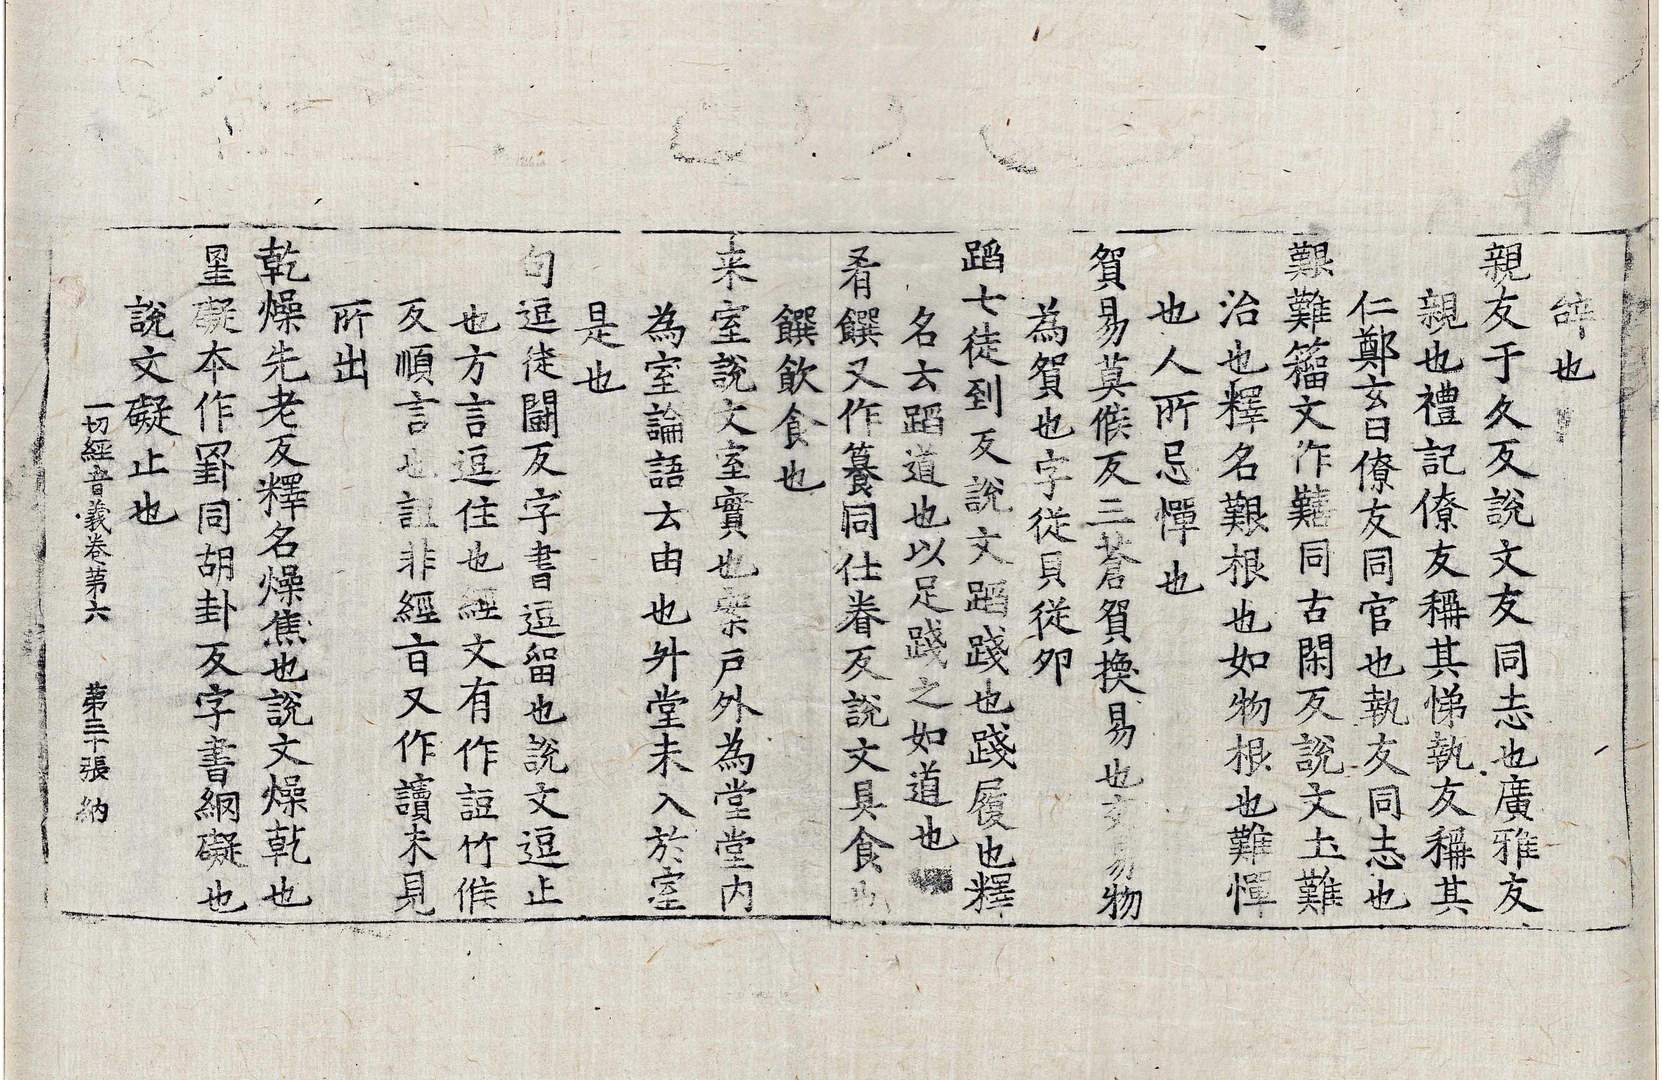 辞也
親友于久反說文友同志也廣雅友
親也禮記僚友稱其悌執友稱其
仁鄭玄曰僚友同官也執友同志也
艱難籀文作囏同古閑反說文土難
治也釋名艱根也如物根也難憚
也人所忌憚也
賀易莫候反三蒼賀換易也交易物
為賀也字從貝從夘
蹈七徒到反說文蹈踐也踐履也釋
名云蹈道也以足踐之如道也
肴饌又作籑同仕眷反說文具食也
饌飲食也
来室說文室實也案戶外為堂堂內
為室論語云由也升堂未入於室
是也
句逗徒鬪反字書逗留也說文逗止
也方言逗住也經文有作䛠竹候
反順言也䛠非經旨又作讀未見
所出
乾燥先老反釋名燥焦也說文燥乾也
罣礙本作罫同胡卦反字書網礙也
說文礙止也
一切經音義卷第六 第三十張 納